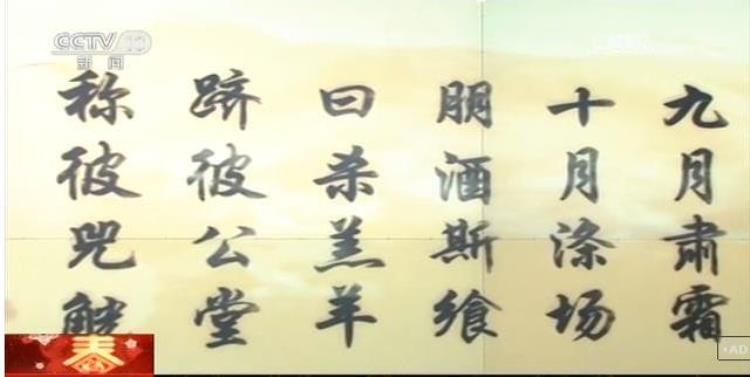 九月肃霜
十月涤场
朋酒斯飨
曰杀羔羊
跻彼公堂
称彼兕觥
CCTV 13
新闻
春
AD